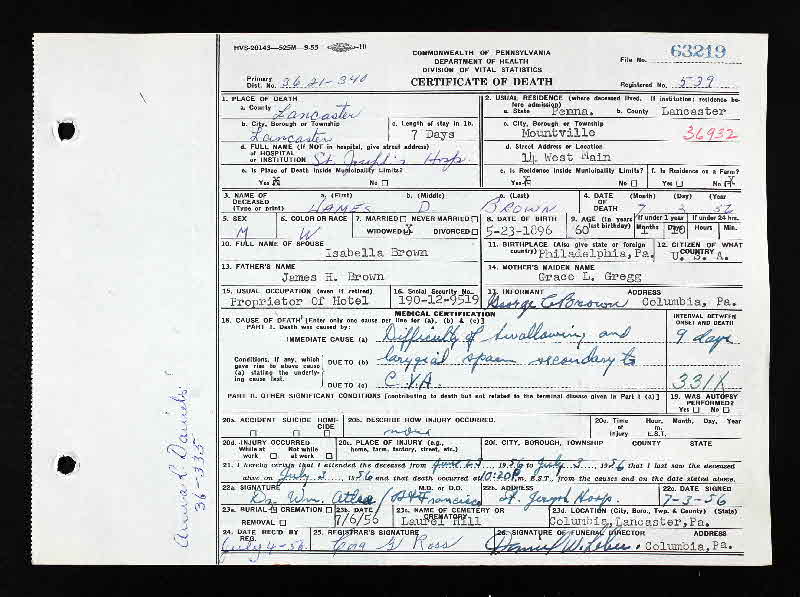 HVS-20143—525M—9-55
COMMONWEALTH OF PENNSYLVANIA
DEPARTMENT OF HEALTH
DIVISION OF VITAL STATISTICS
CERTIFICATE OF DEATH
File No. 63219
Primary Dist. No. 3621-340
Registered No. 539
1. PLACE OF DEATH
a. County Lancaster
b. City, Borough or Township Lancaster
c. Length of stay in 1b. 7 Days
d. FULL NAME (If NOT in hospital, give street address) of HOSPITAL or INSTITUTION St. Joseph's Hosp.
e. Is Place of Death Inside Municipality Limits? Yes X No
2. USUAL RESIDENCE (where deceased lived. If institution: residence before admission)
a. State Penna. b. County Lancaster
c. City, Borough or Township Mountville
36932
d. Street Address or Location
14 West Main
e. Is Residence Inside Municipality Limits? Yes X No
f. Is Residence on a Farm? Yes No X
3. NAME OF DECEASED (Type or print) a. (First) JAMES b. (Middle) D c. (Last) BROWN
4. DATE OF DEATH (Month) 7 (Day) 3 (Year) 56
5. SEX M
6. COLOR OR RACE W
7. MARRIED NEVER MARRIED WIDOWED X DIVORCED
8. DATE OF BIRTH 5-23-1896
9. AGE (In years last birthday) 60 If under 1 year Months 1 Days 10 If under 24 hrs. Hours Min.
10. FULL NAME OF SPOUSE Isabella Brown
11. BIRTHPLACE (Also give state or foreign country) Philadelphia, Pa.
12. CITIZEN OF WHAT COUNTRY U. S. A.
13. FATHER'S NAME James H. Brown
14. MOTHER'S MAIDEN NAME Grace L. Gregg
15. USUAL OCCUPATION (even if retired) Proprietor Of Hotel
16. Social Security No. 190-12-9519
17. INFORMANT ADDRESS George C Brown Columbia, Pa.
MEDICAL CERTIFICATION
18. CAUSE OF DEATH [Enter only one cause per line for (a), (b) & (c)]
PART I. Death was caused by:
INTERVAL BETWEEN ONSET AND DEATH
IMMEDIATE CAUSE (a) Difficulty of Swallowing and 9 days
Conditions, if any, which gave rise to above cause (a) stating the underlying cause last.
DUE TO (b) larygial spasm secondary to
DUE TO (c) C.V.A. 331X
PART II. OTHER SIGNIFICANT CONDITIONS [contributing to death but not related to the terminal disease given in Part I (a)]
19. WAS AUTOPSY PERFORMED? Yes No
20a. ACCIDENT SUICIDE HOMICIDE
20b. DESCRIBE HOW INJURY OCCURRED. none
20c. Time of Injury Hour, m. E.S.T. Month, Day, Year
20d. INJURY OCCURRED While at work Not while at work
20e. PLACE OF INJURY (e.g., home, farm, factory, street, etc.)
20f. CITY, BOROUGH, TOWNSHIP COUNTY STATE
21. I hereby certify that I attended the deceased from June 27, 1956 to July 3, 1956 that I last saw the deceased
alive on July 3 1956 and that death occurred at 10:20P.m. E.S.T., from the causes and on the date stated above.
22a. SIGNATURE M.D. or D.O. Dr. Wm.
22b. ADDRESS St. Joseph Hosp.
22c. DATE SIGNED 7-3-56
23a. BURIAL CREMATION REMOVAL
23b. DATE 7/6/56
23c. NAME OF CEMETERY OR CREMATORY Laurel Hill
23d. LOCATION (City, Boro., Twp. & County) (State) Columbia, Lancaster, Pa.
24. DATE REC'D BY REG. July 4-56
25. REGISTRAR'S SIGNATURE Cora G Ross
26. SIGNATURE OF FUNERAL DIRECTOR ADDRESS Daniel W. Leber. Columbia, Pa.
Anna L Daniels
36-335